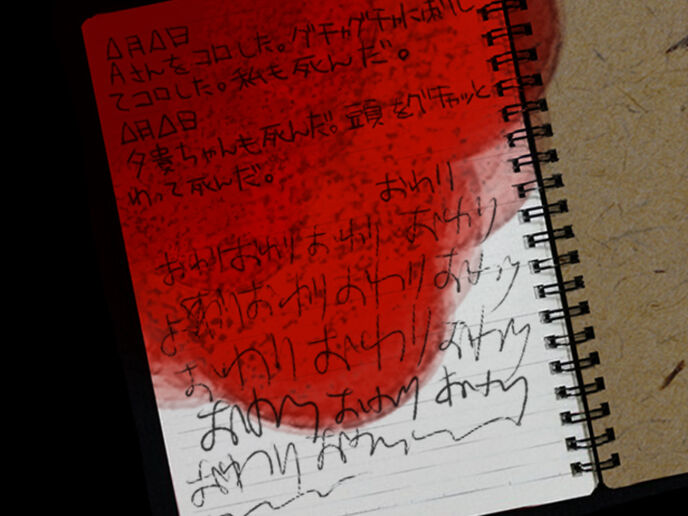 △月△日
Aさんをコロした。グチャグチャにばらし
てコロした。私も死んだ。
△月△日
夕貴ちゃんも死んだ。頭をグチャッと
わって死んだ。
おわり
おわりおわりおわり おわり
おわりおわりおわりおわり
おわりおわりおわり
おわりおわりおわり
おわり